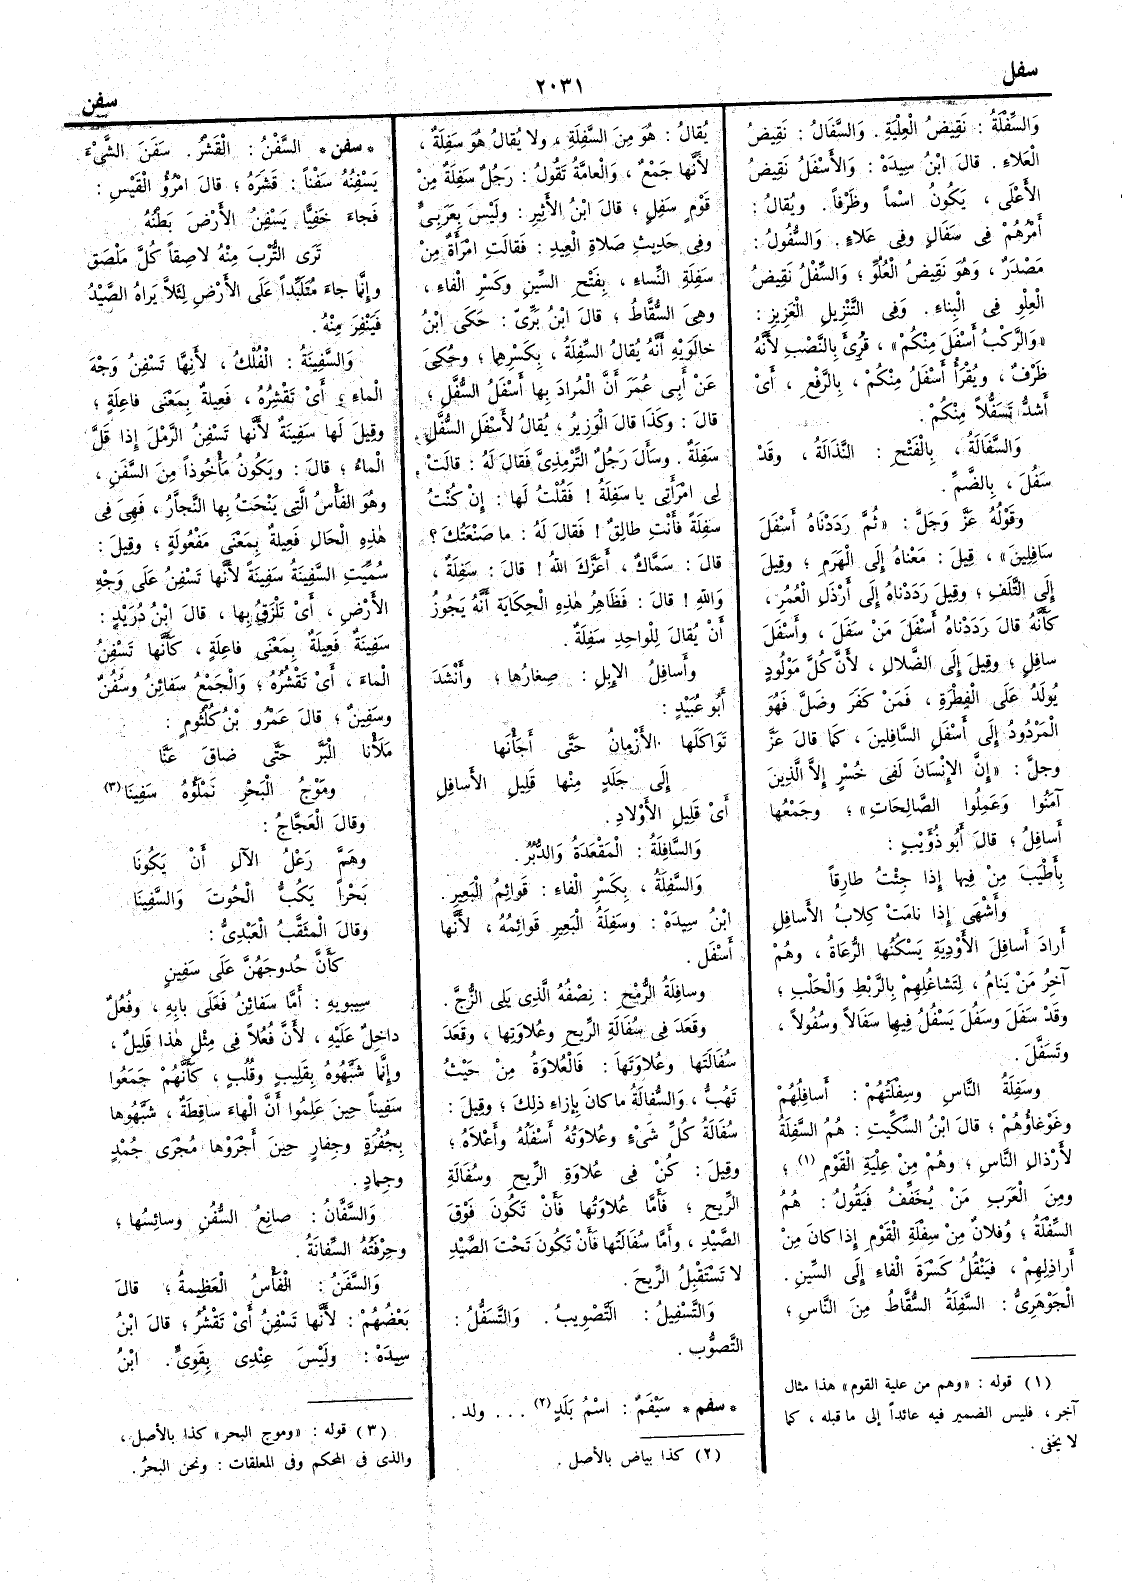 سفل
٢٠٣١
سفن
وَالسِّفْلَةُ : نَقِيضُ الْعِلْيَةِ . وَالسَّفَالُ : نَقِيضُ
الْعَلاءِ . قالَ ابْنُ سِيدَهْ : وَالأَسْفَلُ نَقِيضُ
الأَعْلَى ، يَكُونُ اسْماً وظَرْفاً . ويُقالُ :
أَمْرُهُمْ فِى سَفَالٍ وفِى عَلاءٍ . وَالسُّفُولُ :
مَصْدَرٌ ، وَهُوَ نَقِيضُ الْعُلُوِّ ؛ وَالسِّفْلُ نَقِيضُ
الْعِلْوِ فِى الْبِناءِ . وَفِى التَّنْزِيلِ الْعَزِيزِ :
«وَالرَّكْبُ أَسْفَلَ مِنْكُمْ» ، قُرِئَ بِالنَّصْبِ لأَنَّهُ
ظَرْفٌ ، ويُقْرَأُ أَسْفَلُ مِنْكُمْ ، بِالرَّفْعِ ، أَىْ
أَشَدُّ تَسَفُّلاً مِنْكُمْ .
وَالسَّفَالَةُ ، بِالْفَتْحِ : النَّذَالَةُ ، وقَدْ
سَفُلَ ، بِالضَّمِّ .
وقَوْلُهُ عَزَّ وَجَلَّ : «ثُمَّ رَدَدْنَاهُ أَسْفَلَ
سافِلِينَ» ، قِيلَ : مَعْناهُ إِلَى الْهَرَمِ ؛ وقِيلَ
إِلَى التَّلَفِ ؛ وقِيلَ رَدَدْناهُ إِلَى أَرْذَلِ الْعُمُرِ ،
كَأَنَّهُ قالَ رَدَدْناهُ أَسْفَلَ مَنْ سَفَلَ ، وأَسْفَلَ
سافِلٍ ؛ وقِيلَ إِلَى الضَّلالِ ، لأَنَّ كُلَّ مَوْلُودٍ
يُولَدُ عَلَى الْفِطْرَةِ ، فَمَنْ كَفَرَ وضَلَّ فَهُوَ
الْمَرْدُودُ إِلَى أَسْفَلِ السَّافِلِينَ ، كَما قالَ عَزَّ
وجلَّ : «إِنَّ الإِنْسَانَ لَفِى خُسْرٍ إِلاَّ الَّذِينَ
آمَنُوا وَعَمِلُوا الصَّالِحَاتِ» ؛ وجَمْعُها
أَسافِلُ ؛ قالَ أَبُو ذُؤَيْبٍ :
بِأَطْيَبَ مِنْ فِيها إِذا جِئْتُ طارِقاً
وأَشْهَى إِذا نامَتْ كِلابُ الأَسافِلِ
أَرادَ أَسافِلَ الأَوْدِيَةِ يَسْكُنُها الرُّعَاةُ ، وهُمْ
آخِرُ مَنْ يَنامُ ، لِتَشاغُلِهِمْ بِالرَّبْطِ وَالْحَلْبِ ؛
وقَدْ سَفَلَ وسَفُلَ يَسْفُلُ فِيها سَفَالاً وسُفُولاً ،
وتَسَفَّلَ .
وسَفِلَةُ النَّاسِ وسِفْلَتُهُمْ : أَسافِلُهُمْ
وغَوْغاؤُهُمْ ؛ قالَ ابْنُ السِّكِّيتِ : هُمُ السَّفِلَةُ
لأَرْذالِ النَّاسِ ؛ وهُمْ مِنْ عِلْيَةِ الْقَوْمِ (١) ؛
ومِنَ الْعَرَبِ مَنْ يُخَفِّفُ فَيَقُولُ : هُمُ
السِّفْلَةُ ؛ وُفلانٌ مِنْ سِفْلَةِ الْقَوْمِ إِذا كانَ مِنْ
أَراذِلِهِمْ ، فَيَنْقُلُ كَسْرَةَ الْفاءِ إِلَى السِّينِ .
الْجَوْهَرِىُّ : السَّفِلَةُ السُّقَّاطُ مِنَ النَّاسِ ؛
(١) قوله : «وهم من علية القوم» هذا مثال
آخر ، فليس الضمير فيه عائداً إلى ما قبله ، كما
لا يخفى .
يُقالُ : هُوَ مِنَ السَّفِلَةِ ، ولا يُقالُ هُوَ سَفِلَةٌ ،
لأَنَّها جَمْعٌ ، وَالْعامَّةُ تَقُولُ : رَجُلٌ سَفِلَةٌ مِنْ
قَوْمٍ سَفِلٍ ؛ قالَ ابْنُ الأَثِيرِ : ولَيْسَ بِعَرَبِىٍّ
وفِى حَدِيثِ صَلاةِ الْعِيدِ : فَقالَتِ امْرَأَةٌ مِنْ
سَفِلَةِ النِّساءِ ، بِفَتْحِ السِّينِ وكَسْرِ الْفاءِ ،
وهِىَ السُّقَّاطُ ؛ قالَ ابْنُ بَرِّىّ : حَكَى ابْنُ
خالَوَيْهِ أَنَّهُ يُقالُ السِّفِلَةُ ، بِكَسْرِها ؛ وحُكِىَ
عَنْ أَبِى عُمَرَ أَنَّ الْمُرادَ بِها أَسْفَلُ السُّفَّلِ ؛
قالَ : وكَذَا قالَ الْوَزِيرُ ، يُقالُ لأَسْفَلِ السُّفَّلِ
سَفِلَةٌ . وسَأَلَ رَجُلٌ التِّرْمِذِىَّ فَقالَ لَهُ : قالَتْ
لِى امْرَأَتِى يا سَفِلَةُ ! فَقُلْتُ لَها : إِنْ كُنْتُ
سَفِلَةً فأَنْتِ طالِقٌ ! فَقالَ لَهُ : ما صَنْعَتُكَ ؟
قالَ : سَمَّاكٌ ، أَعَزَّكَ اللهُ ! قالَ : سَفِلَةٌ ،
وَاللهِ ! قالَ : فَظَاهِرُ هٰذِهِ الْحِكايَةِ أَنَّهُ يَجُوزُ
أَنْ يُقالَ لِلْواحِدِ سَفِلَةٌ .
وأَسافِلُ الإِبِلِ : صِغارُها ؛ وأَنْشَدَ
أَبُو عُبَيْدٍ :
تَوَاكَلَها الأَزْمانُ حَتَّى أَجَأْنَها
إِلَى جَلَدٍ مِنْها قَلِيلِ الأَسافِلِ
أَىْ قَلِيلِ الأَوْلادِ .
وَالسَّافِلَةُ : الْمَقْعَدَةُ وَالدُّبُرُ .
وَالسَّفِلَةُ ، بِكَسْرِ الْفاءِ : قَوائِمُ الْبَعِيرِ .
ابْنُ سِيدَهْ : وسَفِلَةُ الْبَعِيرِ قَوائِمُهُ ، لأَنَّها
أَسْفَل .
وسافِلَةُ الرُّمْحِ : نِصْفُهُ الَّذِى يَلِى الزُّجَّ .
وقَعَدَ فِى سُفَالَةِ الرِّيحِ وعُلاوَتِها ، وقَعَدَ
سُفَالَتَها وعُلاوَتَها : فَالْعُلاوَةُ مِنْ حَيْثُ
تَهُبُّ ، وَالسُّفَالَةُ ما كانَ بِإِزاءِ ذلِكَ ؛ وقِيلَ :
سُفَالَةُ كُلِّ شَىْءٍ وعُلاوَتُهُ أَسْفَلُهُ وأَعْلاهُ ؛
وقِيلَ : كُنْ فِى عُلاوَةِ الرِّيحِ وسُفَالَةِ
الرِّيحِ ؛ فَأَمَّا عُلاوَتُها فَأَنْ تَكُونَ فَوْقَ
الصَّيْدِ ، وأَمَّا سُفَالَتُها فَأَنْ تَكُونَ تَحْتَ الصَّيْدِ
لا تَسْتَقْبِلُ الرِّيحَ .
وَالتَّسْفِيلُ : التَّصْوِيبُ . وَالتَّسَفُّلُ :
التَّصَوُّب .
• سفم • سَيْفَمٌ : اسْمُ بَلَدٍ (٢) . . . ولد .
(٢) كذا بياض بالأصل .
• سفن • السَّفْنُ : الْقَشْرُ . سَفَنَ الشَّىْءَ
يَسْفِنُهُ سَفْناً : قَشَرَهُ ؛ قالَ امْرُؤُ الْقَيْسِ :
فَجاءَ خَفِيًّا يَسْفِنُ الأَرْضَ بَطْنُهُ
تَرَى التُّرْبَ مِنْهُ لاصِقاً كُلَّ مَلْصَقِ
وإِنَّما جاءَ مُتَلَبِّداً عَلَى الأَرْضِ لِئَلاَّ يَراهُ الصَّيْدُ
فَيَنْفِرَ مِنْهُ .
وَالسَّفِينَةُ : الْفُلْكُ ، لأَنَّها تَسْفِنُ وَجْهَ
الْماءِ ، أَىْ تَقْشِرُهُ ، فَعِيلَةٌ بِمَعْنَى فاعِلَةٍ ؛
وقِيلَ لَها سَفِينَةٌ لأَنَّها تَسْفِنُ الرَّمْلَ إِذا قَلَّ
الْماءُ ؛ قالَ : ويَكُونُ مَأْخُوذاً مِنَ السَّفَنِ ،
وهُوَ الفَأْسُ الَّتِى يَنْحَتُ بِها النَّجارُ ، فَهِىَ فِى
هٰذِهِ الْحالِ فَعِيلَةٌ بِمَعْنَى مَفْعُولَةٍ ؛ وقِيلَ :
سُمِّيَتِ السَّفِينَةُ سَفِينَةً لأَنَّها تَسْفِنُ عَلَى وَجْهِ
الأَرْضِ ، أَىْ تَلْزَقُ بِها ، قالَ ابْنُ دُرَيْدٍ :
سَفِينَةٌ فَعِيلَةٌ بِمَعْنَى فاعِلَةٍ ، كَأَنَّها تَسْفِنُ
الْماءَ ، أَىْ تَقْشُرُهُ ؛ وَالْجَمْعُ سَفائِنُ وسُفُنٌ
وسَفِينٌ ؛ قالَ عَمْرُو بْنُ كُلْثُومٍ :
مَلَأْنا الْبَرَّ حَتَّى ضاقَ عَنَّا
ومَوْجُ الْبَحْرِ نَمْلَؤُهُ سَفِينَا (٣)
وقالَ الْعَجَّاجُ :
وهَمَّ رَعْلُ الآلِ أَنْ يَكُونَا
بَحْراً يَكُبُّ الْحُوتَ وَالسَّفِينَا
وقالَ الْمثَقَّبُ الْعَبْدِىُّ :
كَأَنَّ حُدوجَهُنَّ عَلَى سَفِينِ
سِيبويهِ : أَمَّا سَفائِنُ فَعَلَى بابِهِ ، وفُعُلٌ
داخِلٌ عَلَيْهِ ، لأَنَّ فُعُلاً فِى مِثْلِ هٰذا قَلِيلٌ ،
وإِنَّما شَبَّهُوهُ بِقَلِيبٍ وقُلُبٍ ، كَأَنَّهُمْ جَمَعُوا
سَفِيناً حِينَ عَلِمُوا أَنَّ الْهاءَ ساقِطَةٌ ، شَبَّهُوها
بِجُفْرَةٍ وجِفارٍ حِينَ أَجْرَوْها مُجْرَى جُمْدٍ
وجِمادٍ .
وَالسَّفَّانُ : صانِعُ السُّفُنِ وسائِسُها ؛
وحِرْفَتُهُ السِّفانَةُ .
وَالسَّفَنُ : الْفَأْسُ الْعَظِيمةُ ؛ قالَ
بَعْضُهُمْ : لأَنَّها تَسْفِنُ أَىْ تَقْشُرُ ؛ قالَ ابْنُ
سِيدَهْ : ولَيْسَ عِنْدِى بِقَوِىٍّ . ابْنُ
(٣) قوله : «وموج البحر» كذا بالأصل ،
والذى فى المحكم وفى المعلقات : ونحن البحرُ .